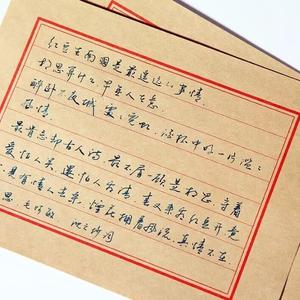 红豆生南国是最遥远的事情
相思算什么早无人在意
醉卧不夜城处处霓虹，酒杯中好一片滥滥
风情。
最肯忘却古人诗 最不屑一顾是相思 守着
爱怕人笑 还怕人看清 春又来看红豆开 竟
不见有情人去采，烟花拥着风流 真情不在
思. 毛阿敏